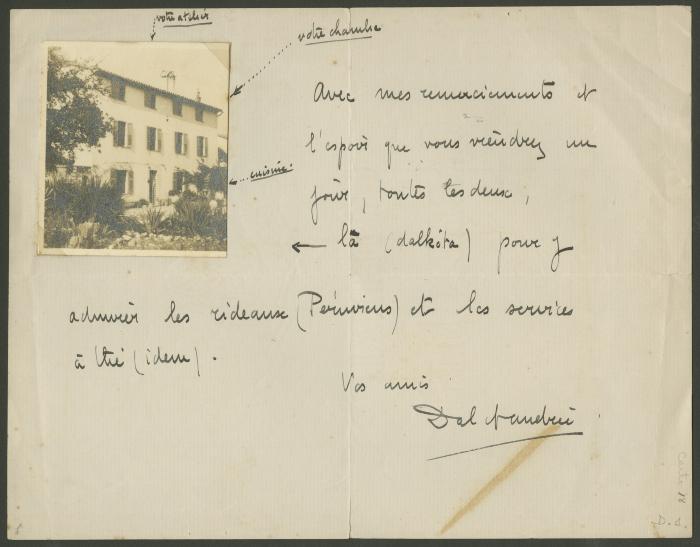 votre atelier
votre chambre
Avec mes remerciements et
l'espoir que vous viendrez un
jour, toutes les deux,
cuisine.
← là (dalkóta) pour y
admirer les rideaux (Péruviens) et les services
à thé (idem).
Vos amis
Dal
Carta 18
D. S.